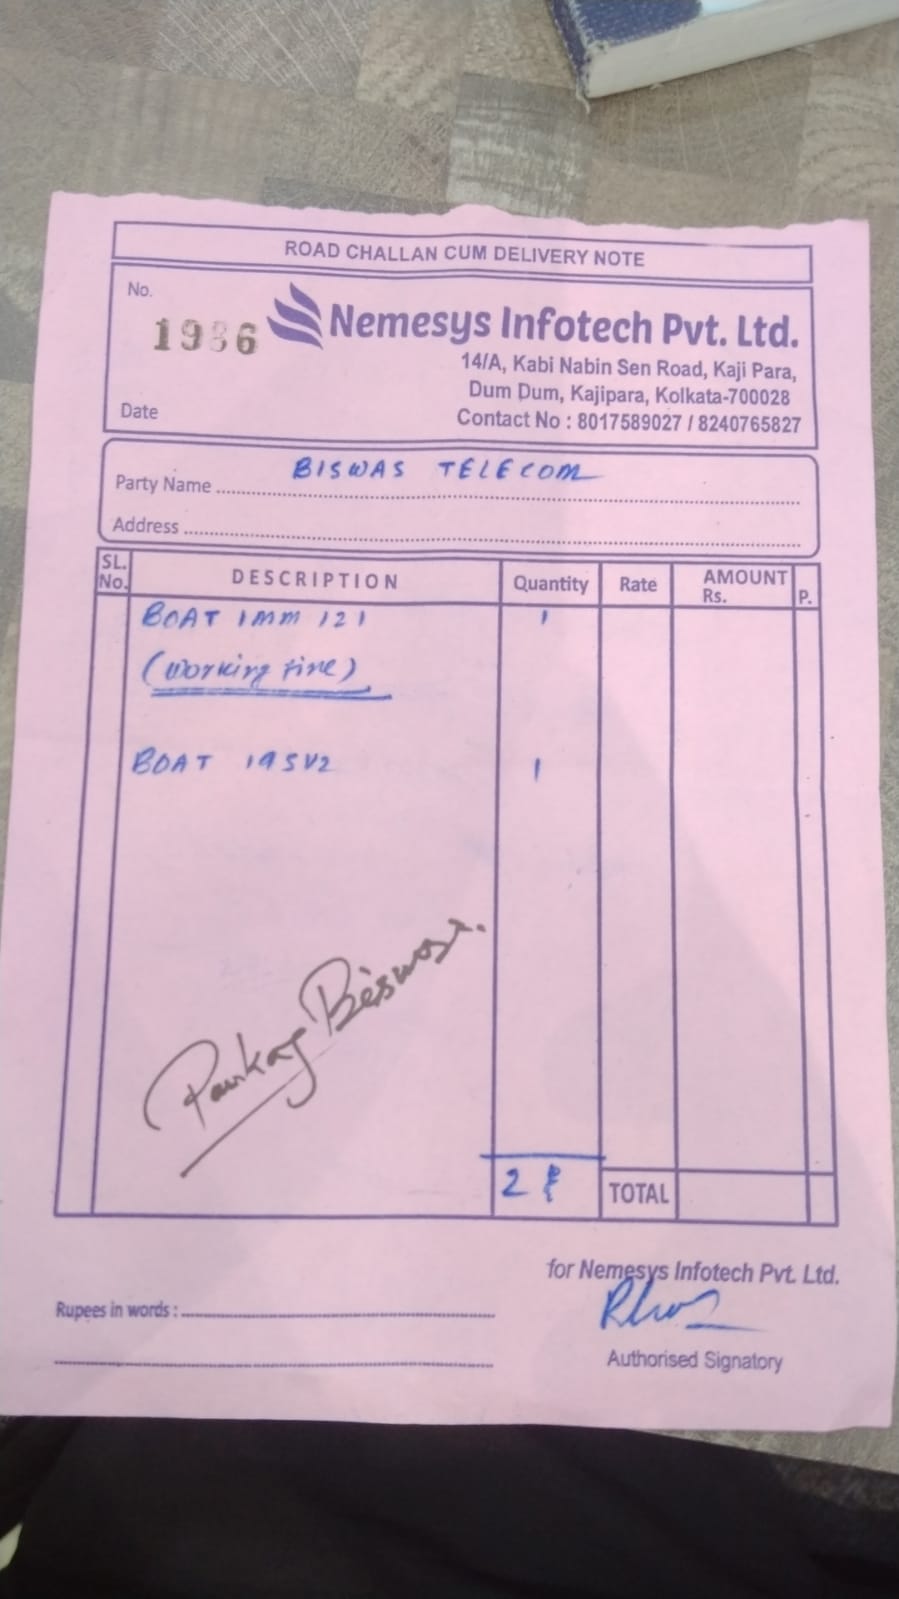 ROAD CHALLAN CUM DELIVERY NOTE
No.
1936
Nemesys Infotech Pvt. Ltd.
14/A, Kabi Nabin Sen Road, Kaji Para,
Dum Dum, Kajipara, Kolkata-700028
Contact No : 8017589027 / 8240765827
Date
Party Name BISWAS TELECOM
Address
SL. No. DESCRIPTION Quantity Rate AMOUNT Rs. P.
BOAT IMM 121 1
(Working fine)
BOAT 195V2 1
Pankaj Biswas.
2 TOTAL
for Nemesys Infotech Pvt. Ltd.
Rupees in words :
Authorised Signatory